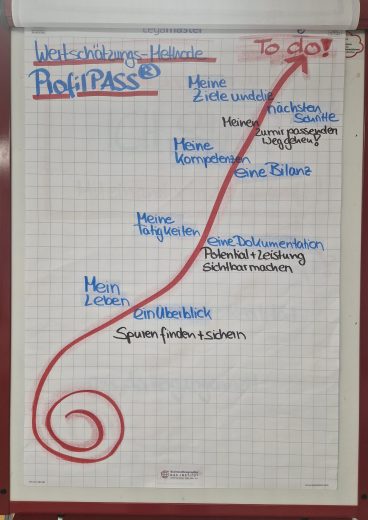 Legamaster
Wertschätzungs-Methode
ProfilPASS®
To do!
Meine
Ziele und die
nächsten
Schritte
Meinen
zu mir passenden
Weg gehen!
Meine
Kompetenzen
eine Bilanz
Meine
Tätigkeiten
eine Dokumentation
Potential + Leistung
Sichtbar machen
Mein
Leben
ein Überblick
Spuren finden + sichern